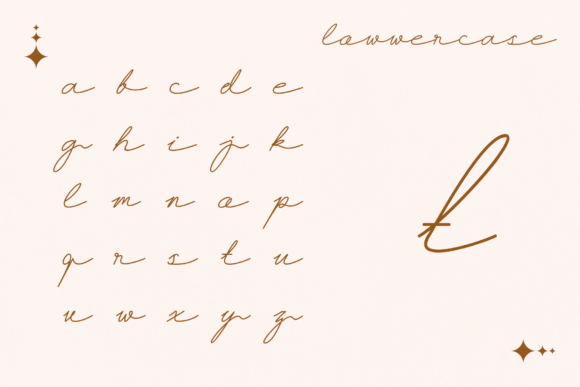 lowwercase
a b c d e
g h i j k
l m n o p
q r s t u
v w x y z